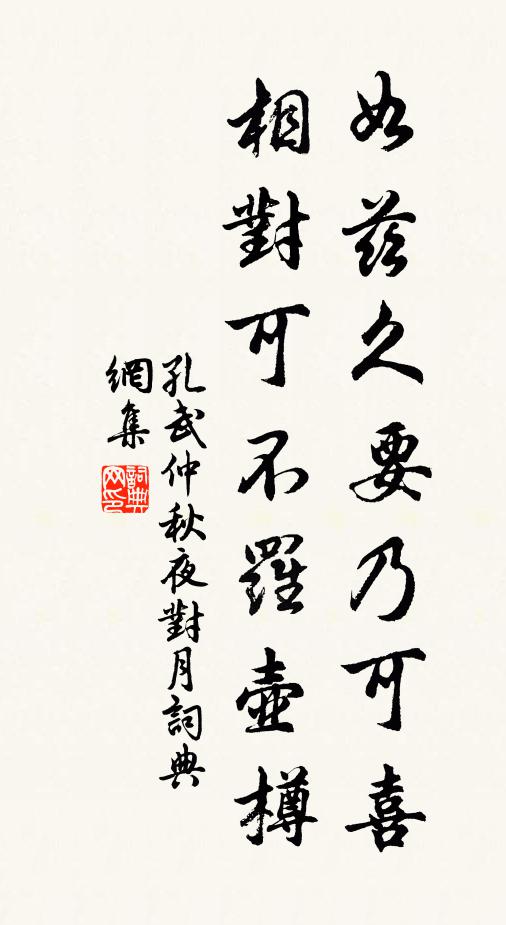 如茲久要乃可喜
相對可不羅壺樽
孔武仲秋夜對月詞典
網集
詞典網印